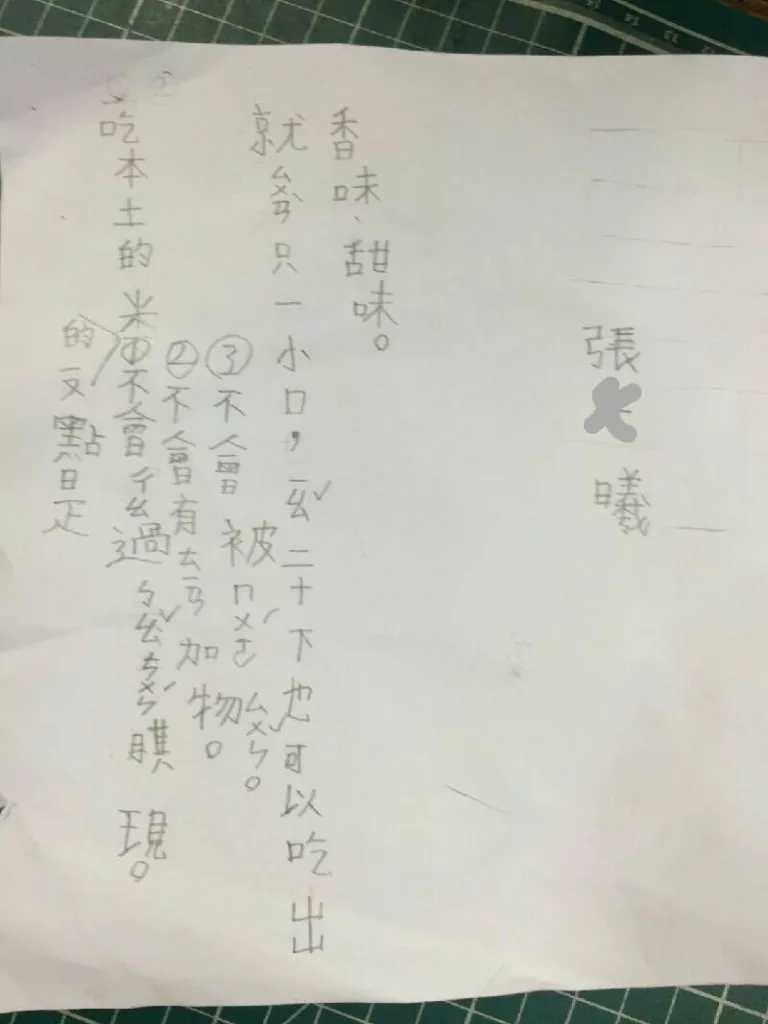 吃本土的米
的又點是
①不會ㄔㄠ過ㄅㄠˇㄘㄨㄣˊ期現。
②不會有ㄊㄧㄢ加物。
③不會被ㄇㄨㄛˊㄙㄨㄣˇ。
就ㄙㄨㄢˋ只一小口,ㄧㄠˇ二十下也可以吃出
香味、甜味。
張 曦